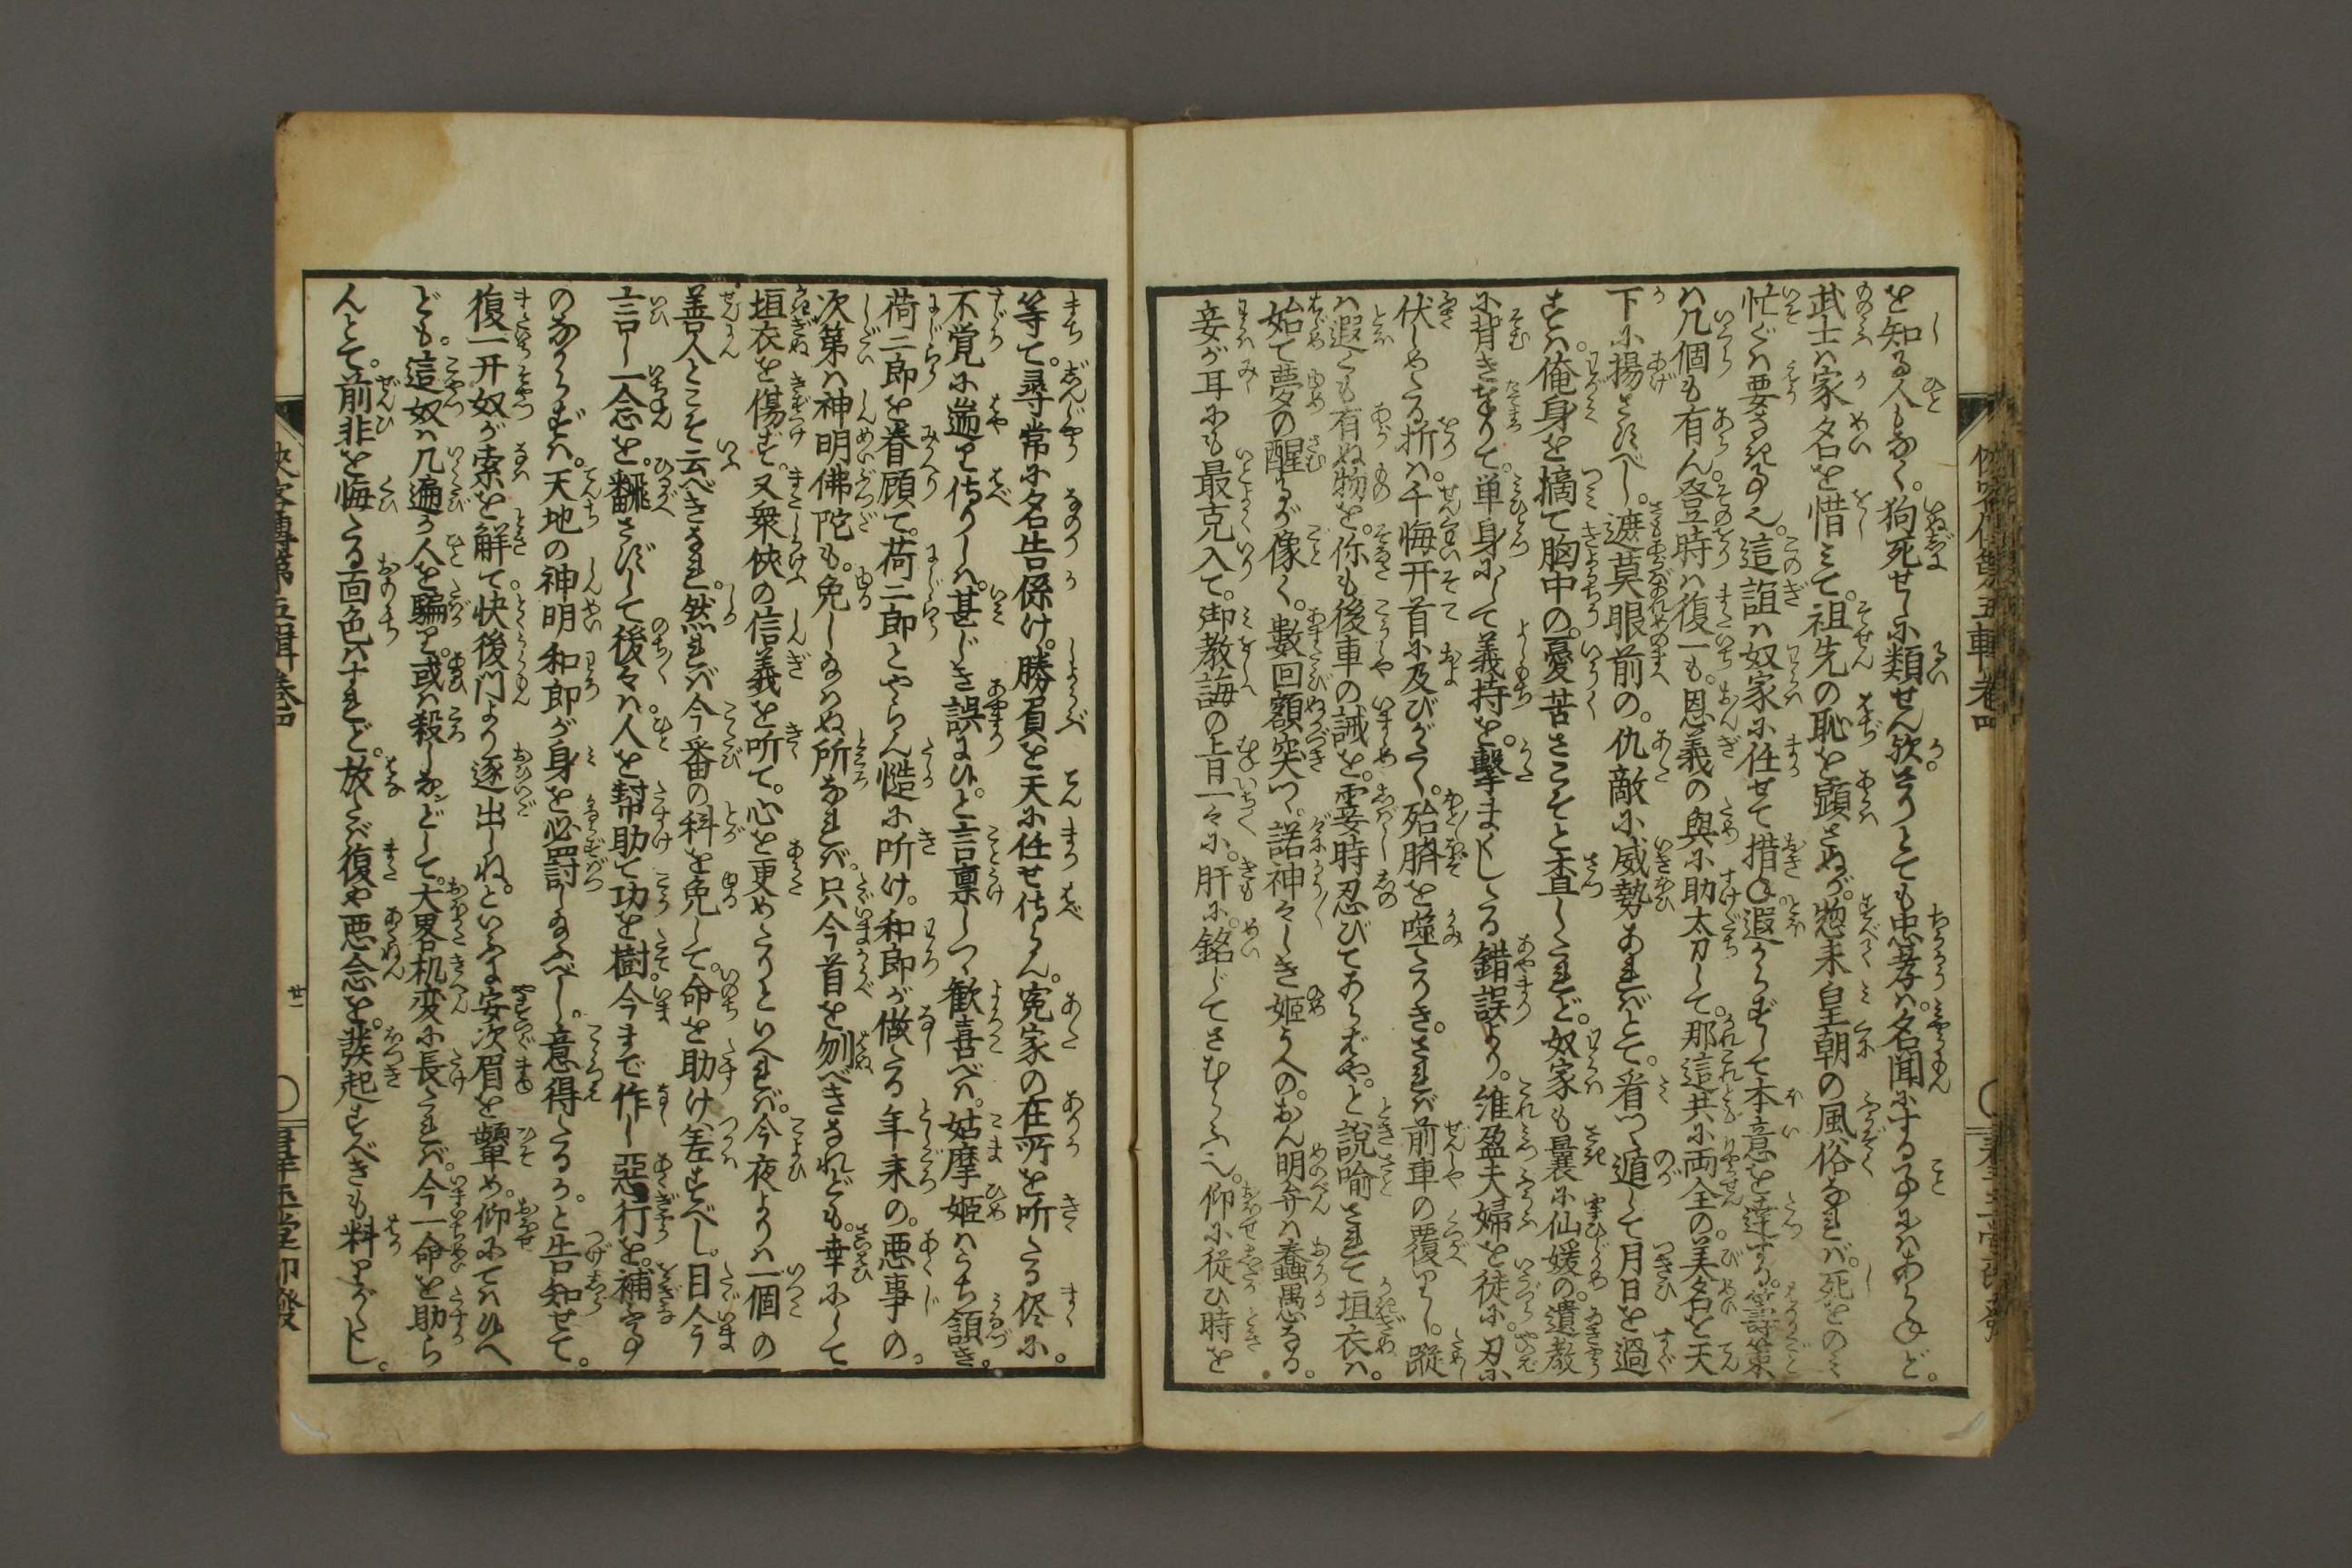 を知る人もなく。狗死せしに類せん歟。さりとても忠孝は。名聞にする事にはあらねど。
武士は家名を惜みて。祖先の恥を顕さぬが。惣て来皇朝の風俗なれば。死をのみ
忙ぐは要なき事ぞ。這誼は奴家に任せて措ね。遐からずして本意を達する。籌策
は几個も有ん。登時は復一も。恩義の與に助太刀して。那這共に両全の。美名を天
下に揚さすべし。遮莫眼前の。仇敵に威勢あればとて。看つゝ遁して月日を過
すは。俺身を摘て胸中の。憂苦さこそと査したれど。奴家も曩に仙嬡の。遺教
に背きまつりて。単身にして義持を。撃まくしたる錯誤より。維盈夫婦を徒に。刃に
伏しめたる折は。千悔开首に及びがたく。殆臍を噬たりき。されば前車の覆りし。蹤
は遐くも有ぬ物を。你も後車の誡を。霎時忍びてあらずや。と説喩されて垣衣は。
始て夢の醒るが像く。數回額突つ。諾神々しき姫うへの。おん明弁は蠢愚なる。
妾が耳にも最克入て。御教誨の旨一々に。肝に。銘じてさむらふ也。仰に従ひ時を
等て。尋常に名告係け。勝負を天に任せ侍らん。寃家の在所を听たる侭に。
不覚に遄り侍りしは。甚じき誤にこそ。と言稟しつゝ歓喜べは。姑摩姫はうち頷き。
荷二郎を眷顧て。荷二郎とやらん慥に听け。和郎が做たる年来の。悪事の
次第は神明佛陀も。免し給はぬ所なれば。只今首を刎べきなれども。幸にして
垣衣を傷ず。又衆侠の信義を听て。心を更めたりといへれば。今夜よりは一個の
善人とこそ云べきなれ。然れば今番の科を免して。命を助け、差すべし。目今う
言し一念を。飜さずして後々は。人を幇助て功を樹。今まで作し惡行を。補ふ事
のなからずは。天地の神明和郎が身を必罰し給ふべし。意得たるか。と告知せて。
復一开奴が索を解て。快後門より逐出しね。といふに安次眉を顰め。仰にては候へ
ども。這奴は几遍か人を騙り。或は殺しなンどして。大畧机変に長たれば。今一命を助ら
んとて。前非を悔たる面色はすれど。放さば復や悪念を。發起すべきも料りがたし。